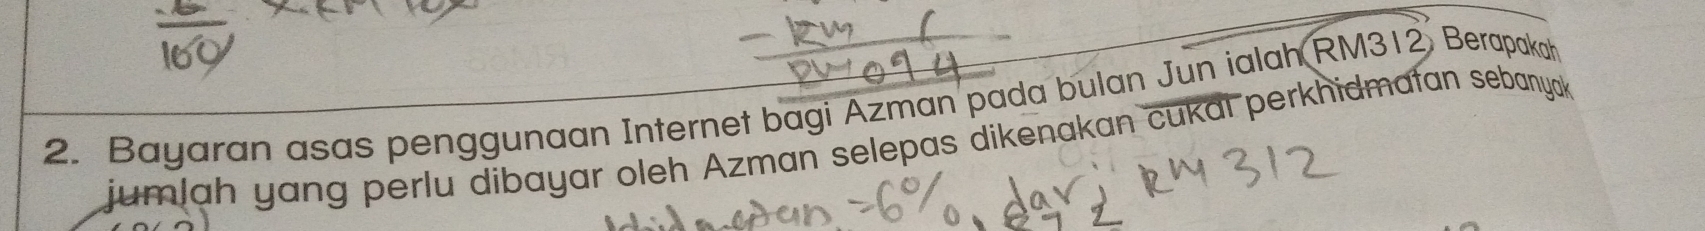 6
160
RM 6
RM094
2. Bayaran asas penggunaan Internet bagi Azman pada bulan Jun ialah RM312. Berapakah
jumlah yang perlu dibayar oleh Azman selepas dikenakan cukai perkhidmatan sebanyak
=6%, dari RM 312